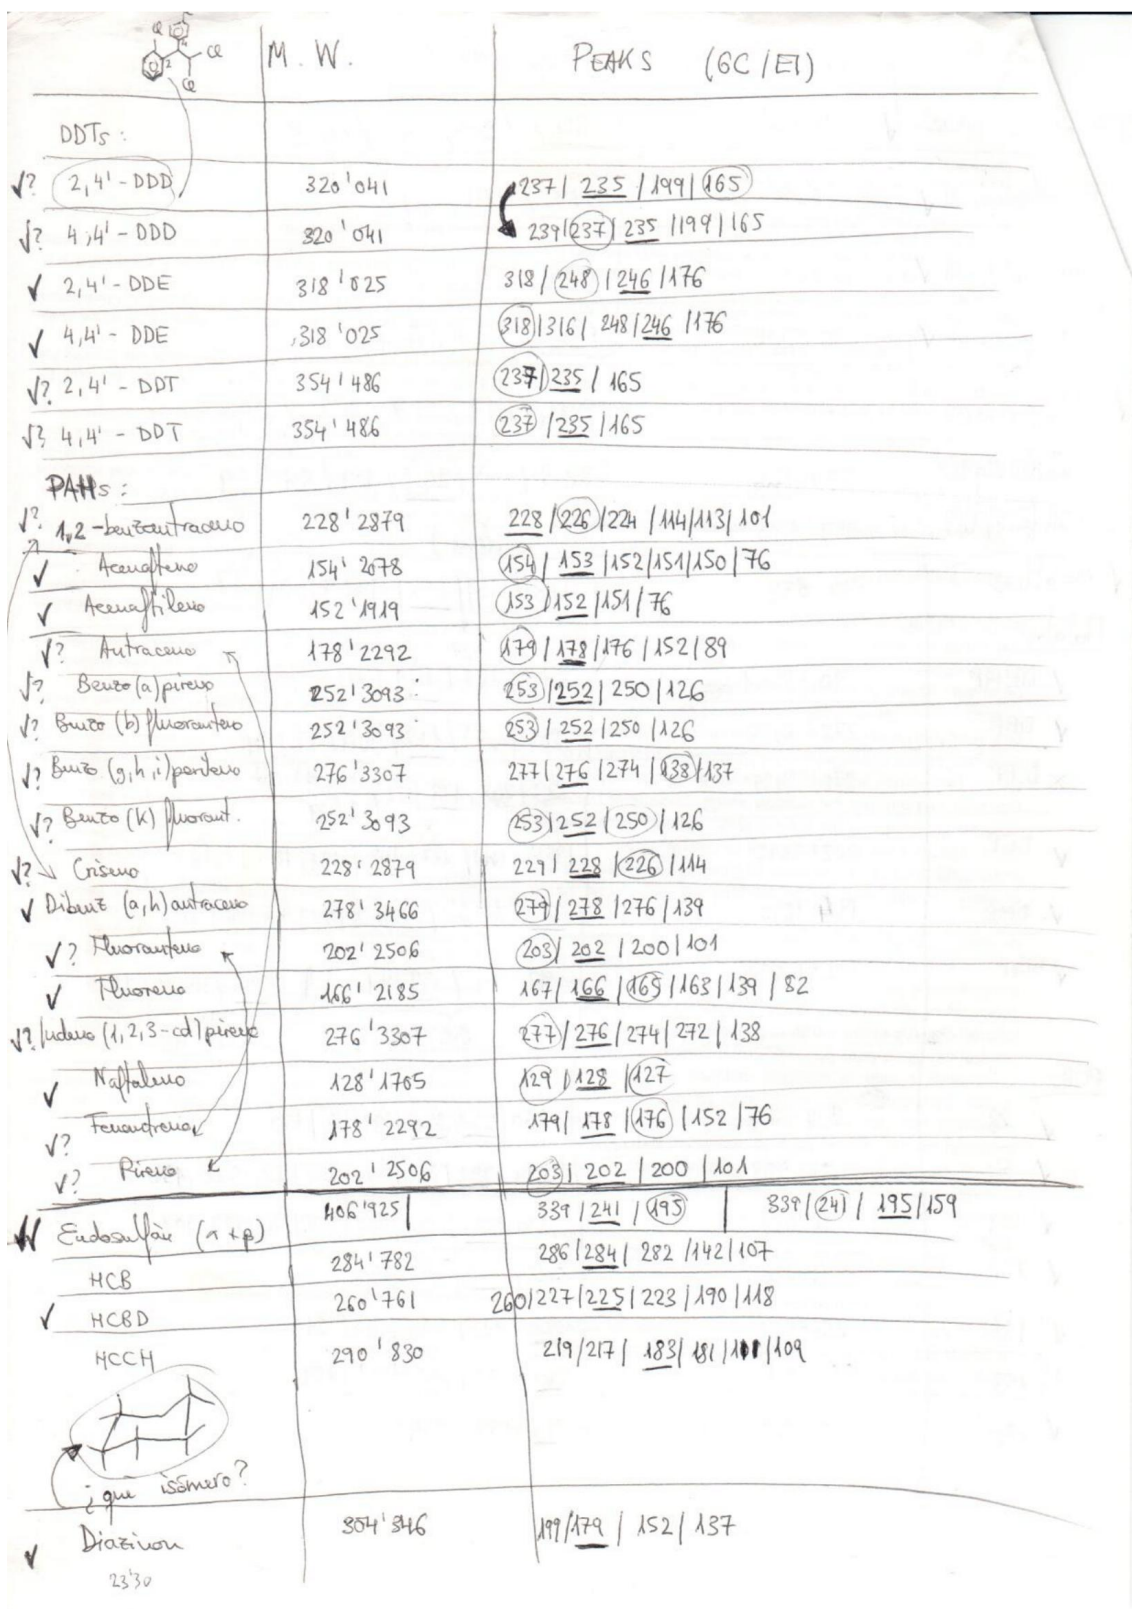 Cl
Cl
Cl
2
4
M. W. PEAKS (GC/EI)
DDTs :
√? 2,4' - DDD 320'041 237 / 235 / 199 / 165
√? 4,4' - DDD 320'041 239 / 237 / 235 / 199 / 165
✓ 2,4' - DDE 318'025 318 / 248 / 246 / 176
✓ 4,4' - DDE 318'025 318 / 316 / 248 / 246 / 176
√? 2,4' - DDT 354'486 237 / 235 / 165
√? 4,4' - DDT 354'486 237 / 235 / 165
PAHs :
√? 1,2-benzoantraceno 228'2879 228 / 226 / 224 / 114 / 113 / 101
✓ Acenafteno 154'2078 154 / 153 / 152 / 151 / 150 / 76
✓ Acenaftileno 152'1919 153 / 152 / 151 / 76
√? Antraceno 178'2292 179 / 178 / 176 / 152 / 89
√? Benzo(a)pireno 252'3093 253 / 252 / 250 / 126
√? Benzo (b) fluoranteno 252'3093 253 / 252 / 250 / 126
√? Benzo (g,h,i)perileno 276'3307 277 / 276 / 274 / 138 / 137
√? Benzo (k) fluorant. 252'3093 253 / 252 / 250 / 126
√? Criseno 228'2879 229 / 228 / 226 / 114
✓ Dibenz (a,h)antraceno 278'3466 279 / 278 / 276 / 139
√? Fluoranteno 202'2506 203 / 202 / 200 / 101
✓ Fluoreno 166'2185 167 / 166 / 165 / 163 / 139 / 82
√? Indeno (1,2,3-cd) pireno 276'3307 277 / 276 / 274 / 272 / 138
✓ Naftaleno 128'1705 129 / 128 / 127
√? Fenantreno 178'2292 179 / 178 / 176 / 152 / 76
√? Pireno 202'2506 203 / 202 / 200 / 101
✓✓ Endosulfán (α+β) 406'925 | 339 / 241 / 195 | 339 / 241 / 195 / 159
HCB 284'782 286 / 284 / 282 / 142 / 107
✓ HCBD 260'761 260 / 227 / 225 / 223 / 190 / 118
HCCH 290'830 219 / 217 / 183 / 181 / 111 / 109
¿qué isómero?
✓ Diazinon 304'346 199 / 179 / 152 / 137
23'30